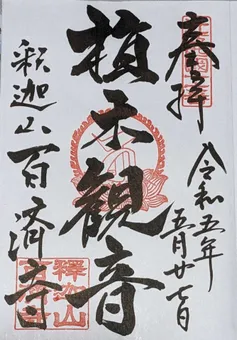 奉拝
令和五年
五月廿七日
植木観音
釈迦山百済寺
釋迦山